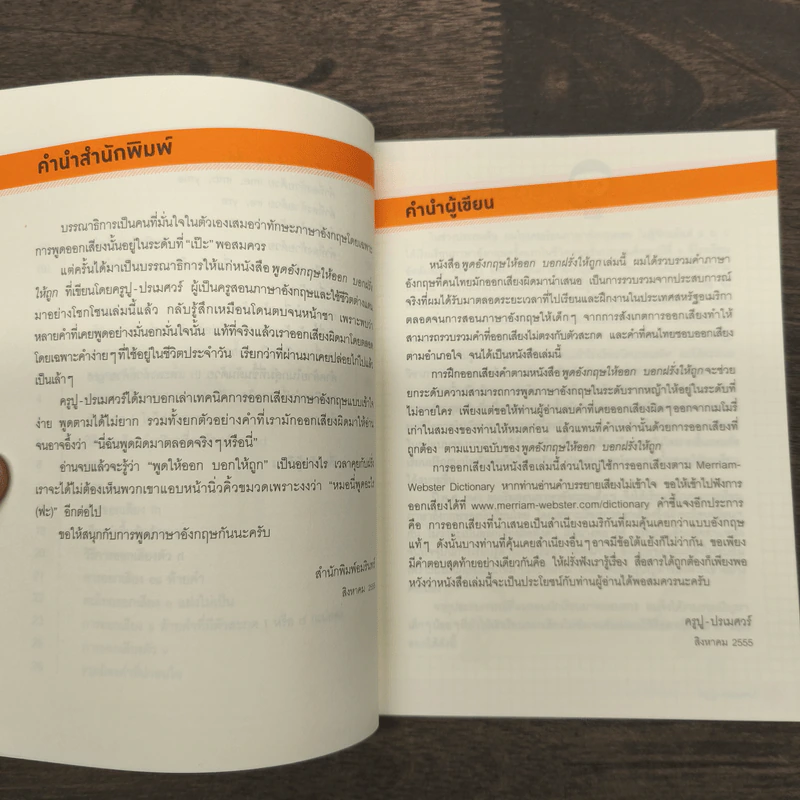 คำนำสำนักพิมพ์
บรรณาธิการเป็นคนที่มั่นใจในตัวเองเสมอว่าทักษะภาษาอังกฤษโดยเฉพาะ
การพูดออกเสียงนั้นอยู่ในระดับที่ "เป๊ะ" พอสมควร
แต่ครั้นได้มาเป็นบรรณาธิการให้แก่หนังสือ พูดอังกฤษให้ออก บอกฝรั่ง
ให้ถูก ที่เขียนโดยครูปู-ปรเมศวร์ ผู้เป็นครูสอนภาษาอังกฤษและใช้ชีวิตต่างแดน
มาอย่างโชกโชนเล่มนี้แล้ว กลับรู้สึกเหมือนโดนตบจนหน้าชา เพราะพบว่า
หลายคำที่เคยพูดอย่างมั่นอกมั่นใจนั้น แท้ที่จริงแล้วเราออกเสียงผิดมาโดยตลอด
โดยเฉพาะคำง่ายๆ ที่ใช้อยู่ในชีวิตประจำวัน เรียกว่าที่ผ่านมาเคยปล่อยไก่ไปแล้ว
เป็นเล้าๆ
ครูปู-ปรเมศวร์ได้มาบอกเล่าเทคนิคการออกเสียงภาษาอังกฤษแบบเข้าใจ
ง่าย พูดตามได้ไม่ยาก รวมทั้งยกตัวอย่างคำที่เรามักออกเสียงผิดมาให้อ่าน
จนอาจอึ้งว่า "นี่ฉันพูดผิดมาตลอดจริงๆ หรือนี่"
อ่านจบแล้วจะรู้ว่า "พูดให้ออก บอกให้ถูก" เป็นอย่างไร เวลาคุยกับฝรั่ง
เราจะได้ไม่ต้องเห็นพวกเขาแอบหน้านิ่วคิ้วขมวดเพราะงงว่า "หมอนี่พูดอะไร
(ฟะ)" อีกต่อไป
ขอให้สนุกกับการพูดภาษาอังกฤษกันนะครับ
สำนักพิมพ์อมรินทร์
สิงหาคม
คำนำผู้เขียน
หนังสือ พูดอังกฤษให้ออก บอกฝรั่งให้ถูก เล่มนี้ ผมได้รวบรวมคำภาษา
อังกฤษที่คนไทยมักออกเสียงผิดมานำเสนอ เป็นการรวบรวมจากประสบการณ์
จริงที่ผมได้รับมาตลอดระยะเวลาที่ไปเรียนและฝึกงานในประเทศสหรัฐอเมริกา
ตลอดจนการสอนภาษาอังกฤษให้เด็กๆ จากการสังเกตการออกเสียงทำให้
สามารถรวบรวมคำที่ออกเสียงไม่ตรงกับตัวสะกด และคำที่คนไทยชอบออกเสียง
ตามอำเภอใจ จนได้เป็นหนังสือเล่มนี้
การฝึกออกเสียงคำตามหนังสือ พูดอังกฤษให้ออก บอกฝรั่งให้ถูก จะช่วย
ยกระดับความสามารถการพูดภาษาอังกฤษในระดับรากหญ้าให้อยู่ในระดับที่
ไม่อายใคร เพียงแต่ขอให้ท่านผู้อ่านลบคำที่เคยออกเสียงผิดๆ ออกจากเมโมรี่
เก่าในสมองของท่านให้หมดก่อน แล้วแทนที่คำเหล่านั้นด้วยการออกเสียงที่
ถูกต้อง ตามแบบฉบับของ พูดอังกฤษให้ออก บอกฝรั่งให้ถูก
การออกเสียงในหนังสือเล่มนี้ส่วนใหญ่ใช้การออกเสียงตาม Merriam-
Webster Dictionary หากท่านอ่านคำบรรยายเสียงไม่เข้าใจ ขอให้เข้าไปฟังการ
ออกเสียงได้ที่ www.merriam-webster.com/dictionary คำชี้แจงอีกประการ
คือ การออกเสียงที่นำเสนอเป็นสำเนียงอเมริกันที่ผมคุ้นเคยกว่าแบบอังกฤษ
แท้ๆ ดังนั้นบางท่านที่คุ้นเคยสำเนียงอื่นๆ อาจมีข้อโต้แย้งก็ไม่ว่ากัน ขอเพียง
มีคำตอบสุดท้ายอย่างเดียวกันคือ ให้ฝรั่งฟังเรารู้เรื่อง สื่อสารได้ถูกต้องก็เพียงพอ
หวังว่าหนังสือเล่มนี้จะเป็นประโยชน์กับท่านผู้อ่านได้พอสมควรนะครับ
ครูปู-ปรเมศวร์
สิงหาคม 2555